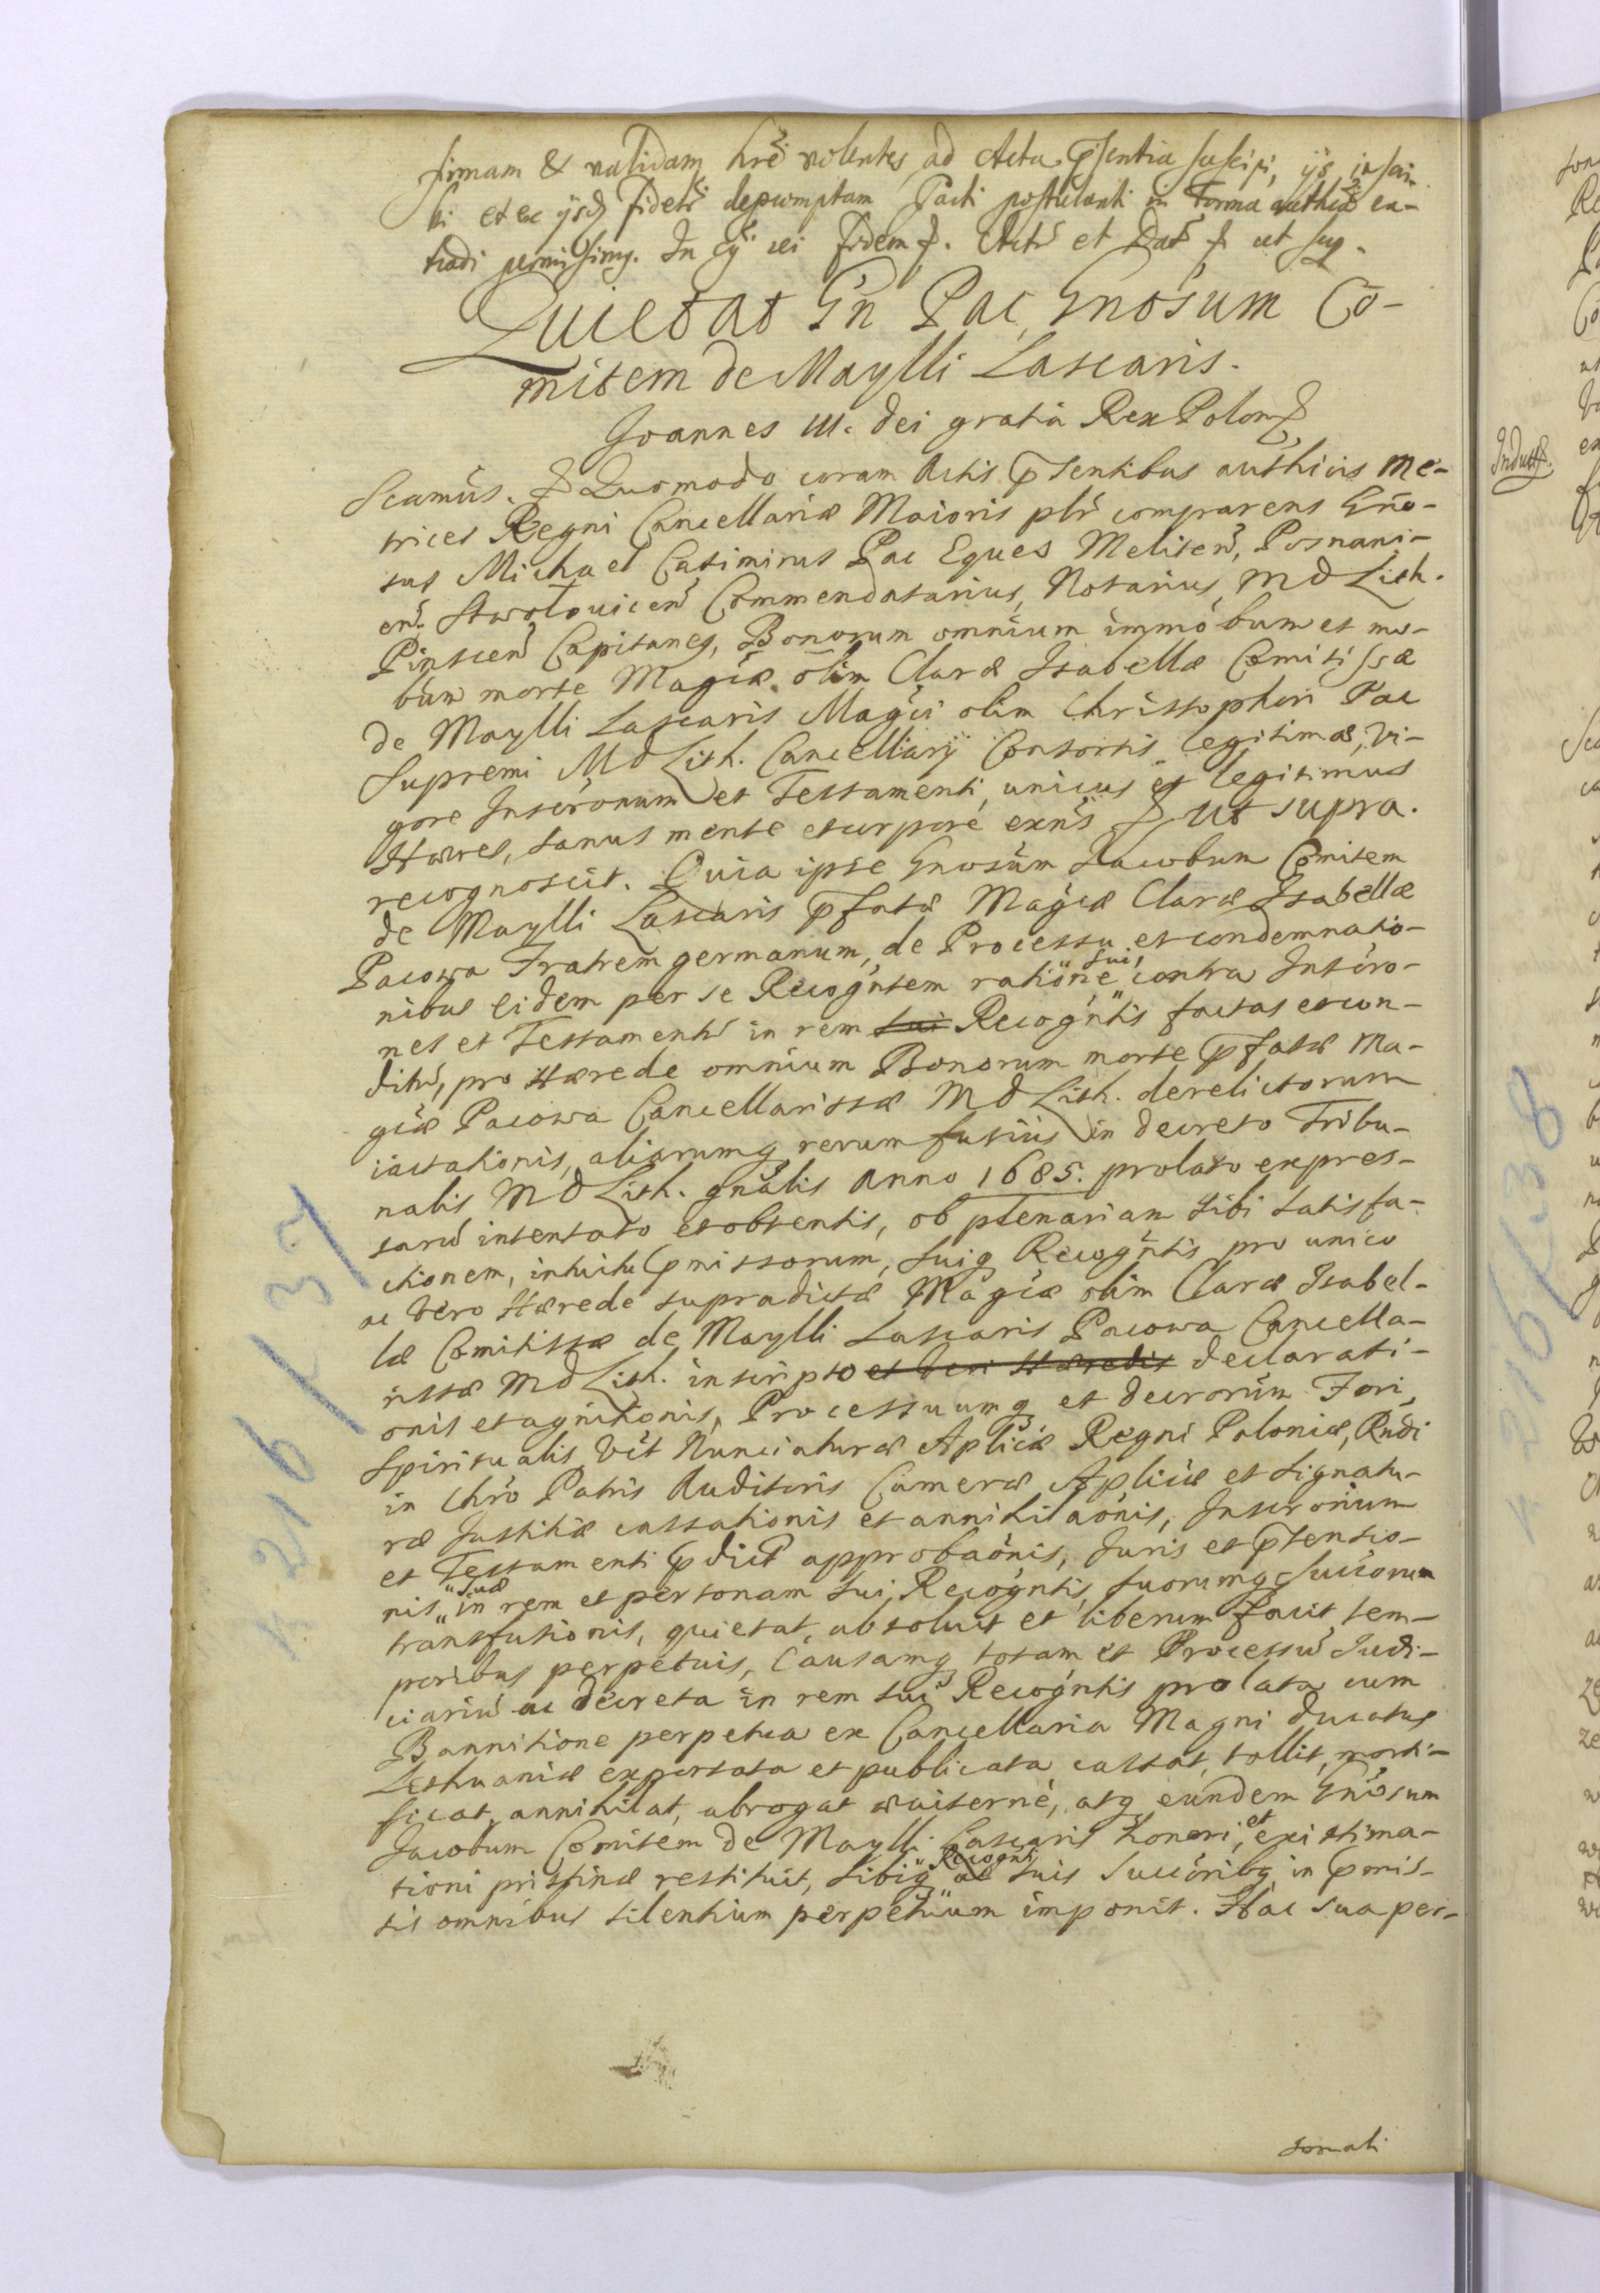 firmam & validam hrẽ volentes ad Acta pṡentia suscipi, ijs inscri-
bi et ex ijsdem fideł depromptam Parti postulanti in forma authcã ex-
tradi permisimus. In cujus rei fidem &. Actum et Datum & ut supr.
Quietat Gn̄ Pac Gnosum Co-
mitem de Maylli Lascaris.
Joannes III. Dei gratia Rex Polon &
Scamus. & Quomodo coram Actis pṡentibus authicis Me-
trices Regni Cancellariæ Maioris płr comparens Gno-
sus Michael Casimirus Pac Eques Meliteñ, Posnani-
eñ. Stwołoviceñ Commendatarius, Notarius, M D Lith.
Pinsceñ Capitaneus, Bonorum omnium immobum et mo-
bum morte Magcæ olim Claræ Isabellæ Comitissæ
de Maylli Lascaris Magci olim Christophori Pac
Supremi M D Lith. Cancellarij Consortis legitimæ, vi-
gore Inscronum et Testamenti, unicus et legitimus
Hæres, sanus mente et corpore exns & ut supra.
recognoscit. Quia ipse Gnosum Jacobum Comitem
de Maylli Lascaris pfatæ Magcæ Claræ Isabellæ
Pacowa Fratrem germanum, de Processu et condemnatio-
nibus eidem per se Recogntem ratione "sui" contra Inscro-
nes et Testamentũ in rem sui Recogntis factas et con-
ditũ, pro Hærede omnium Bonorum morte pfatæ Ma-
gcæ Pacowa Cancellarissæ M D Lith. derelictorum
iactationis, aliarumq rerum fusius in decreto Tribu-
nalis M D Lith. gnalis Anno 1685. prolato expres-
sarũ intentato et obtentis, ob plenariam sibi satisfa-
ctionem, intuitu pmissorum, suiq Recogntis pro unico
ac vero Hærede supradictæ Magcæ olim Claræ Isabel-
læ Comitissæ de Maylli Lascaris Pacowa Cancella-
rissæ M D Lith. inscripto et veri Hæredis declarati-
onis et agnitionis, Processuumq et decrorum Fori
Spiritualis, vłt Nunciaturæ Aplicæ Regni Poloniæ, Rndi
in Chro Patris Auditoris Cameræ Aplicæ et Signatu-
ræ Justitiæ cassationis et annihilaonis, Inscronum
et Testamenti pdict approbaonis, Juris et ptensio-
nis "suæ" in rem et personam sui Recogntis, suorumq Succorum
transfusionis, quietat, absoluit et liberum facit, tem-
poribus perpetuis, Causamq totam et Processũ Judi-
ciariũ ac decreta in rem sui Recogntis prolata cum
Bannitione perpetua ex Cancellaria Magni Ducatus
Lithuaniæ exportata et publicata cassat, tollit, morti-
ficat, annihilat, abrogat æviterne, atq eundem Gnosum
Jacobum Comitem de Maylli Lascaris honori, et existima-
tioni pristinæ restituit, sibiq "Recognti" ac suis Succoribq in pmis-
sis omnibus silentium perpetuum imponit. Hac sua per-
sonali
4216/37
4216/38
Indust.